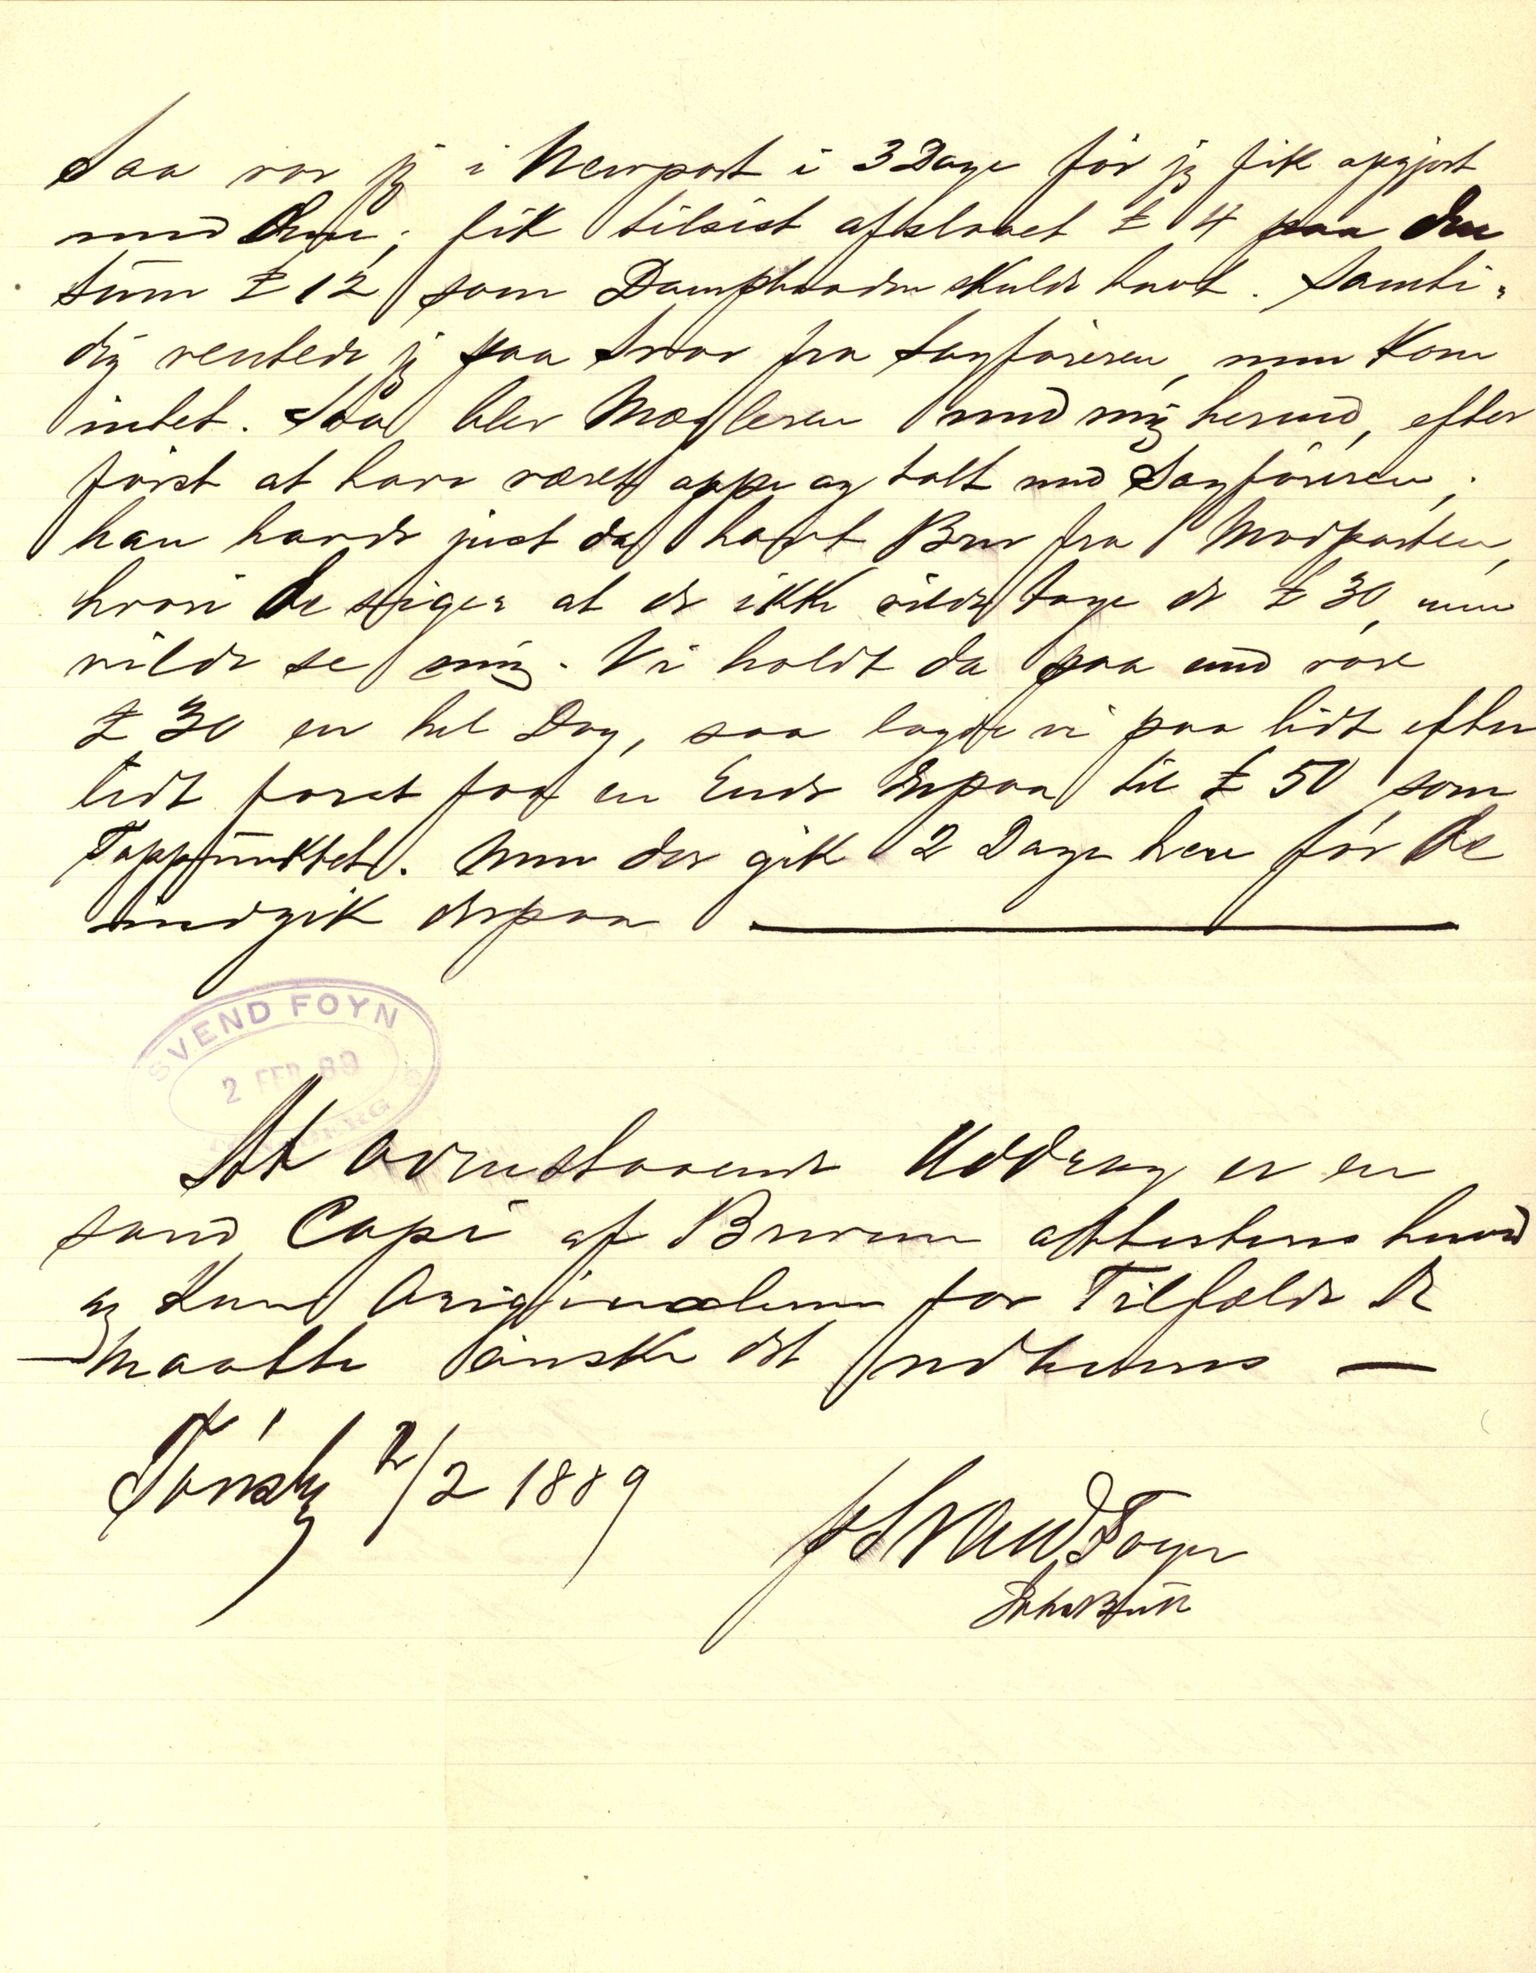 Saa var jeg i Newport i 3 Dage før jeg fik opgjort
med dem; fik tilsist afslaaet £ 4 paa den
Sum £ 12 som Dampbaaden skulde havt. Samti-
dig ventede jeg paa Svar fra Sagføreren, men kom
intet. Saa blev Mægleren med mig herned, efter
først at have været oppe og talt med Sagføreren;
han havde just da havt Brev fra Modparten,
hvori de siger at de ikke vilde tage de £ 30, men
vilde se mig. Vi holdt da paa med vore
£ 30 en hel Dag, saa lagde vi paa lidt efter
lidt foret faa en Ende derpaa til £ 50 som
Toppunktet. Men der gik 2 Dage hen før de
indgik derpaa
SVEND FOYN
2 FEB 89
TØNSBERG
At ovenstaaende Uddrag er en
sand Copi af Brevene attesteres herved
og kan Originalerne for Tilfælde De
maatte ønske det
Tønsbg 2/2 1889
Svend Foyn